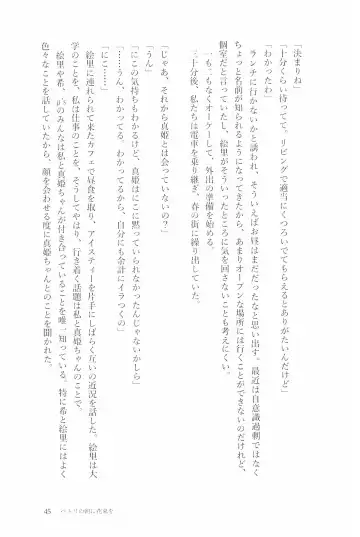 「決まりね」
「十分くらい待ってて。リビングで適当にくつろいでてもらえるとありがたいんだけど」
「わかったわ」
ランチに行かないかと誘われ、そういえばお昼はまだだったなと思い出す。最近は自意識過剰ではなく
ちょっと名前が知られるようになってきたから、あまりオープンな場所には行くことができないのだけれど、
個室だと言っていたし、絵里がそういったところに気を回さないことも考えにくい。
一も二もなくオーケーして、外出の準備を始める。
三十分後、私たちは電車を乗り継ぎ、春の街に繰り出していた。
「じゃあ、それから真姫とは会っていないの？」
「うん」
「にこの気持ちもわかるけど、真姫はにこに黙っていられなかったんじゃないかしら」
「……うん、わかってる、わかってるから、自分にも余計にイラつくの」
「にこ……」
絵里に連れられて来たカフェで昼食を取り、アイスティーを片手にしばらく互いの近況を話した。絵里は大
学のことを、私は仕事のことを、そうしてやはり、行き着く話題は私と真姫ちゃんのことで、
絵里や希、μ'sのみんなは私と真姫ちゃんが付き合っていることを唯一知っている。特に希と絵里にはよく
色々なことを話していたから、顔を合わせる度に真姫ちゃんとのことを聞かれた。
45